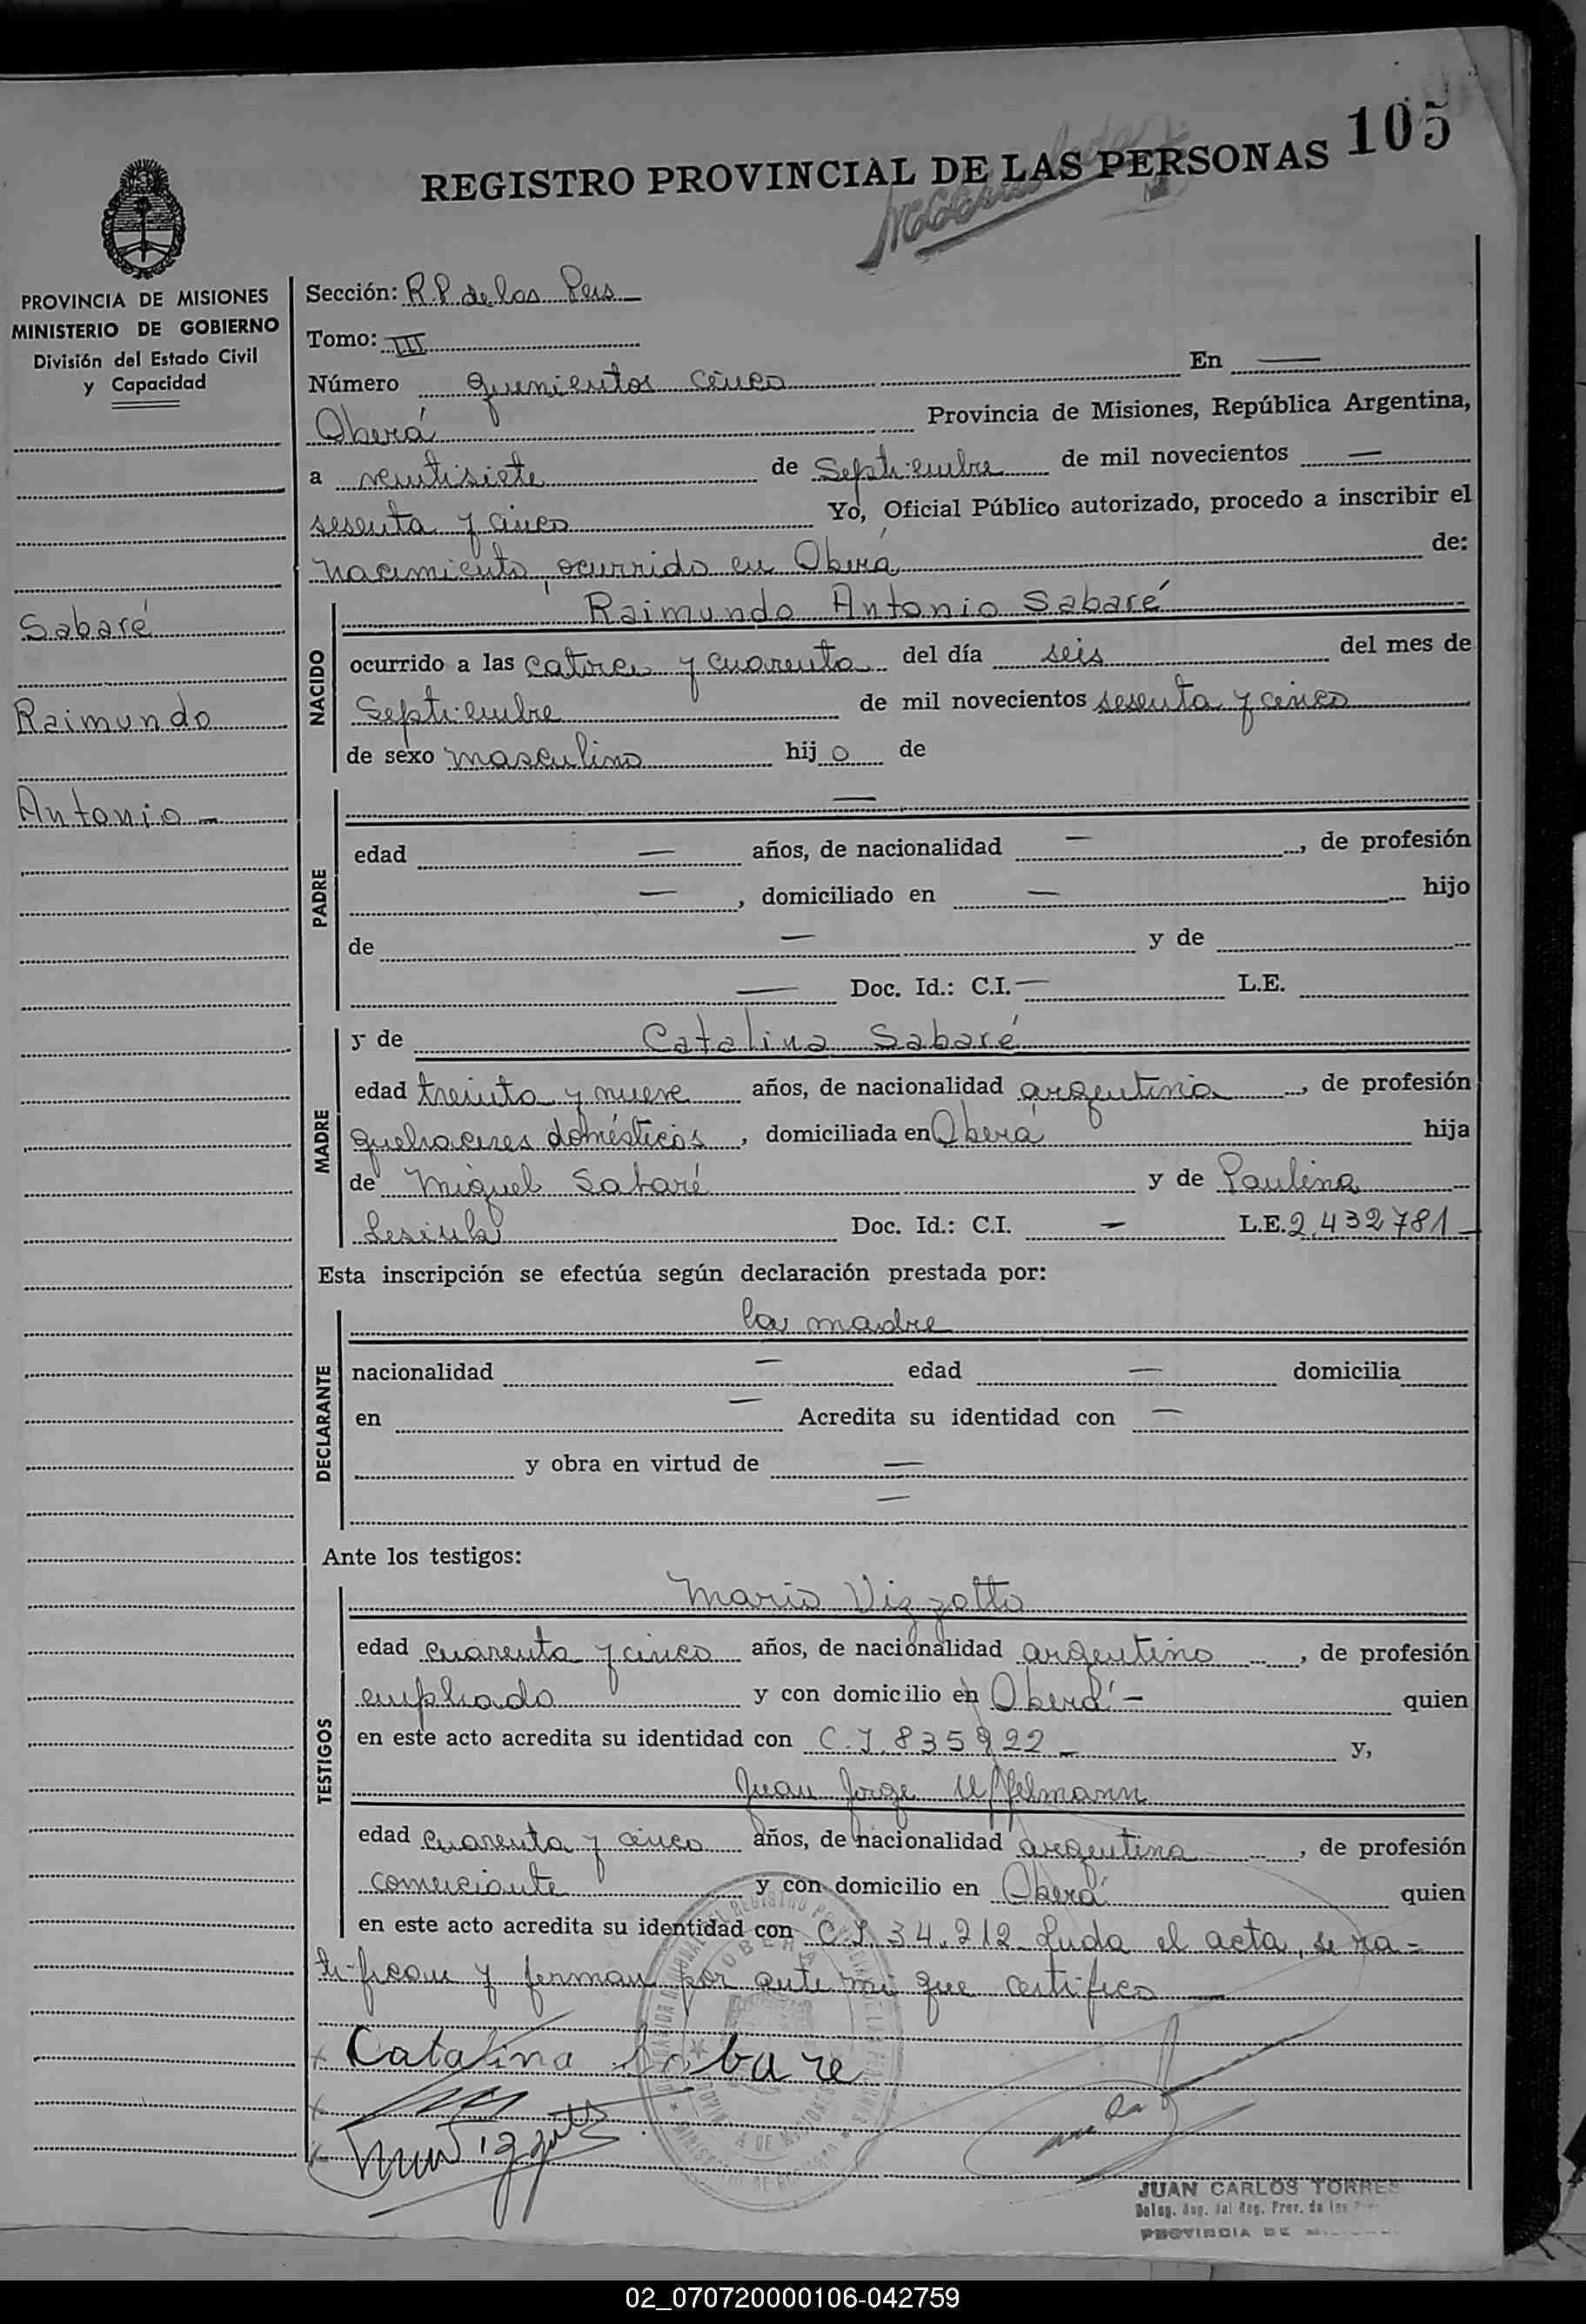 105
REGISTRO PROVINCIAL DE LAS PERSONAS
PROVINCIA DE MISIONES
MINISTERIO DE GOBIERNO
División del Estado Civil
y Capacidad
Sabaré
Raimundo
Antonio -
Sección: R.P. de las Pers
Tomo: III
Número quinientos cinco En —
Oberá Provincia de Misiones, República Argentina,
a veintisiete de Septiembre de mil novecientos —
sesenta y cinco Yo, Oficial Público autorizado, procedo a inscribir el
nacimiento ocurrido en Oberá de:
NACIDO
Raimundo Antonio Sabaré
ocurrido a las catorce y cuarenta del día seis del mes de
Septiembre de mil novecientos sesenta y cinco
de sexo masculino hijo de
PADRE
—
edad — años, de nacionalidad —, de profesión
—, domiciliado en — hijo
de — y de
— Doc. Id.: C.I. — L.E.
MADRE
y de Catalina Sabaré
edad treinta y nueve años, de nacionalidad argentina, de profesión
quehaceres domésticos, domiciliada en Oberá hija
de Miguel Sabaré y de Paulina
Doc. Id.: C.I. — L.E. 2.432781 -
Esta inscripción se efectúa según declaración prestada por:
DECLARANTE
la madre
nacionalidad — edad — domicilia
en — Acredita su identidad con —
y obra en virtud de —
—
Ante los testigos:
TESTIGOS
Mario Vizzotto
edad cuarenta y cinco años, de nacionalidad argentino, de profesión
empleado y con domicilio en Oberá - quien
en este acto acredita su identidad con C.I. 835922 - y,
Juan Jorge Uffelmann
edad cuarenta y cinco años, de nacionalidad argentina, de profesión
comerciante y con domicilio en Oberá quien
en este acto acredita su identidad con C.I. 34.212 - Leida el acta, se ra-
tifican y firman por ante mi que certifico —
Catalina Sabare
JUAN CARLOS TORRES
PROVINCIA DE
02_070720000106-042759